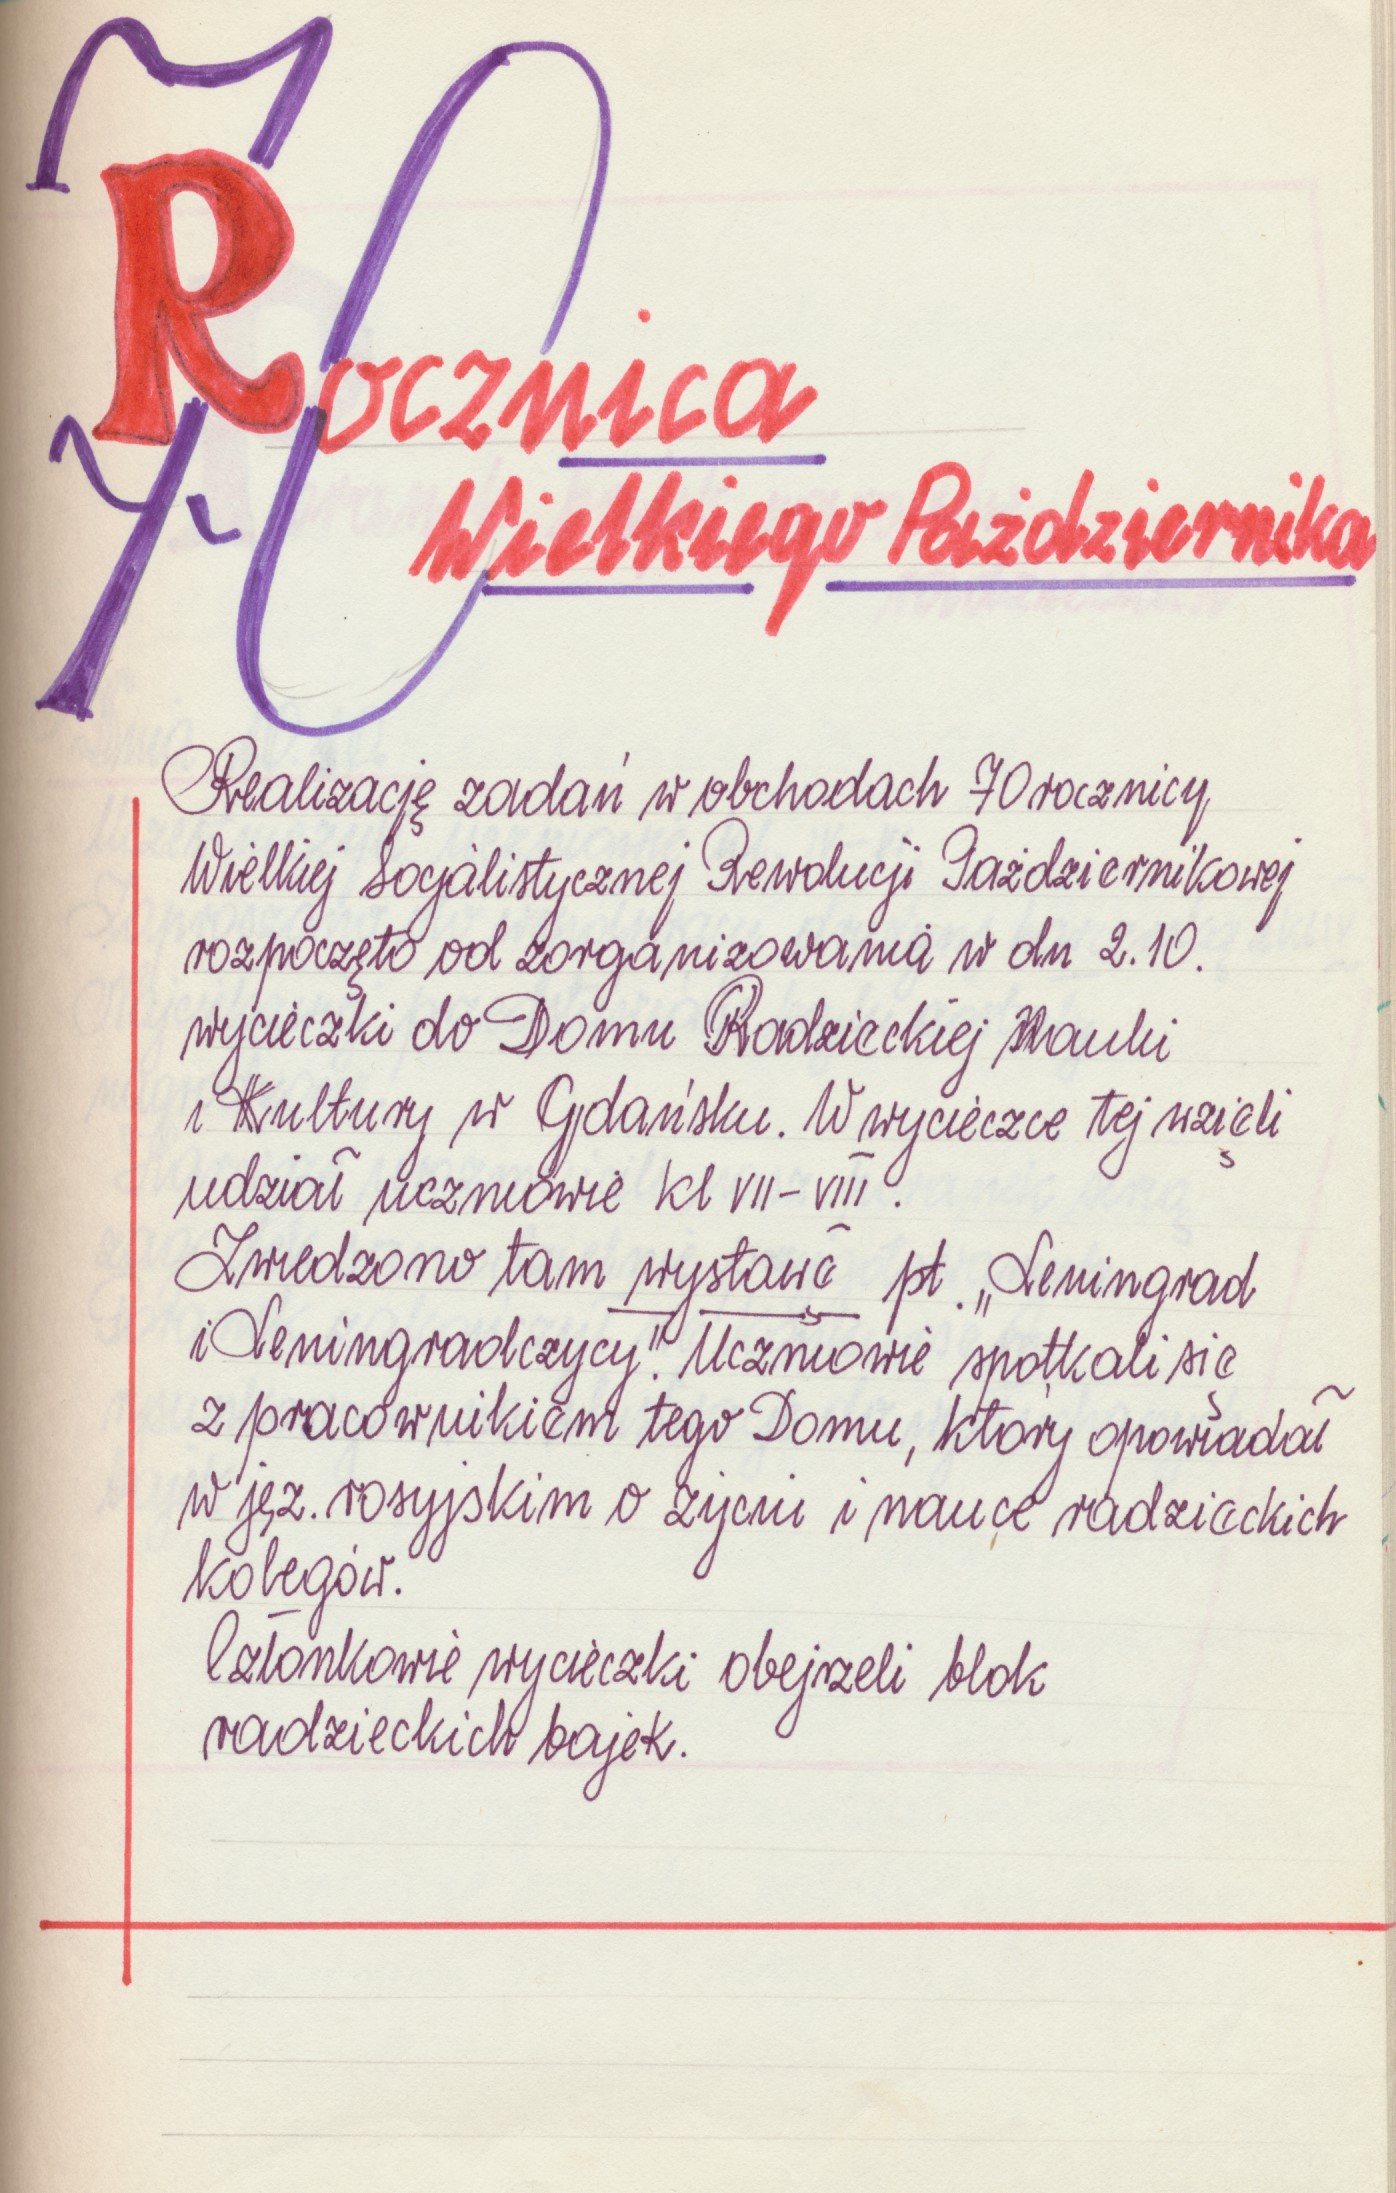 70
Rocznica
Wielkiego Października
Realizację zadań w obchodach 70 rocznicy
Wielkiej Socjalistycznej Rewolucji Październikowej
rozpoczęto od zorganizowania w dn 2.10.
wycieczki do Domu Radzieckiej Nauki
i Kultury w Gdańsku. W wycieczce tej wzięli
udział uczniowie kl VII-VIII.
Zwiedzono tam wystawę pt. „Leningrad
i Leningradczycy". Uczniowie spotkali się
z pracownikiem tego Domu, który opowiadał
w jęz. rosyjskim o życiu i nauce radzieckich
kolegów.
Członkowie wycieczki obejrzeli blok
radzieckich bajek.